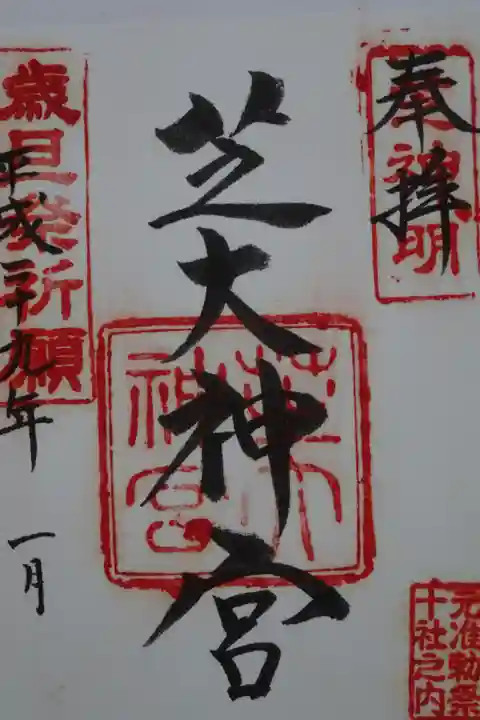 奉拝
神明
芝大神宮
芝大神宮
歳旦祭祈願
平成二十九年
一月
元准勅祭
十社之内